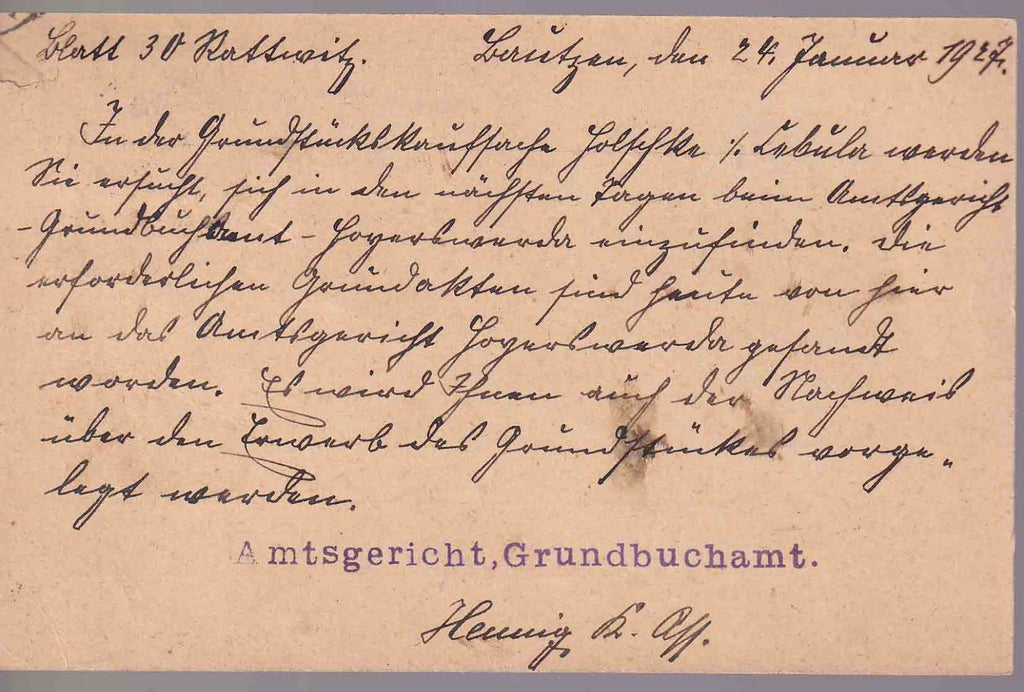 Blatt 30 Rattwitz. Bautzen, den 24. Januar 1927.
In der Grundstückskaufsache Holschke ·/. Cebula werden
Sie ersucht, sich in den nächsten Tagen beim Amtsgericht
- Grundbuchamt - Hoyerswerda einzufinden. Die
erforderlichen Grundakten sind heute von hier
an das Amtsgericht Hoyerswerda gesandt
worden. Es wird Ihnen auch der Nachweis
über den Erwerb des Grundstückes vorge-
legt werden.
Amtsgericht, Grundbuchamt.
Hennig K. Ass.